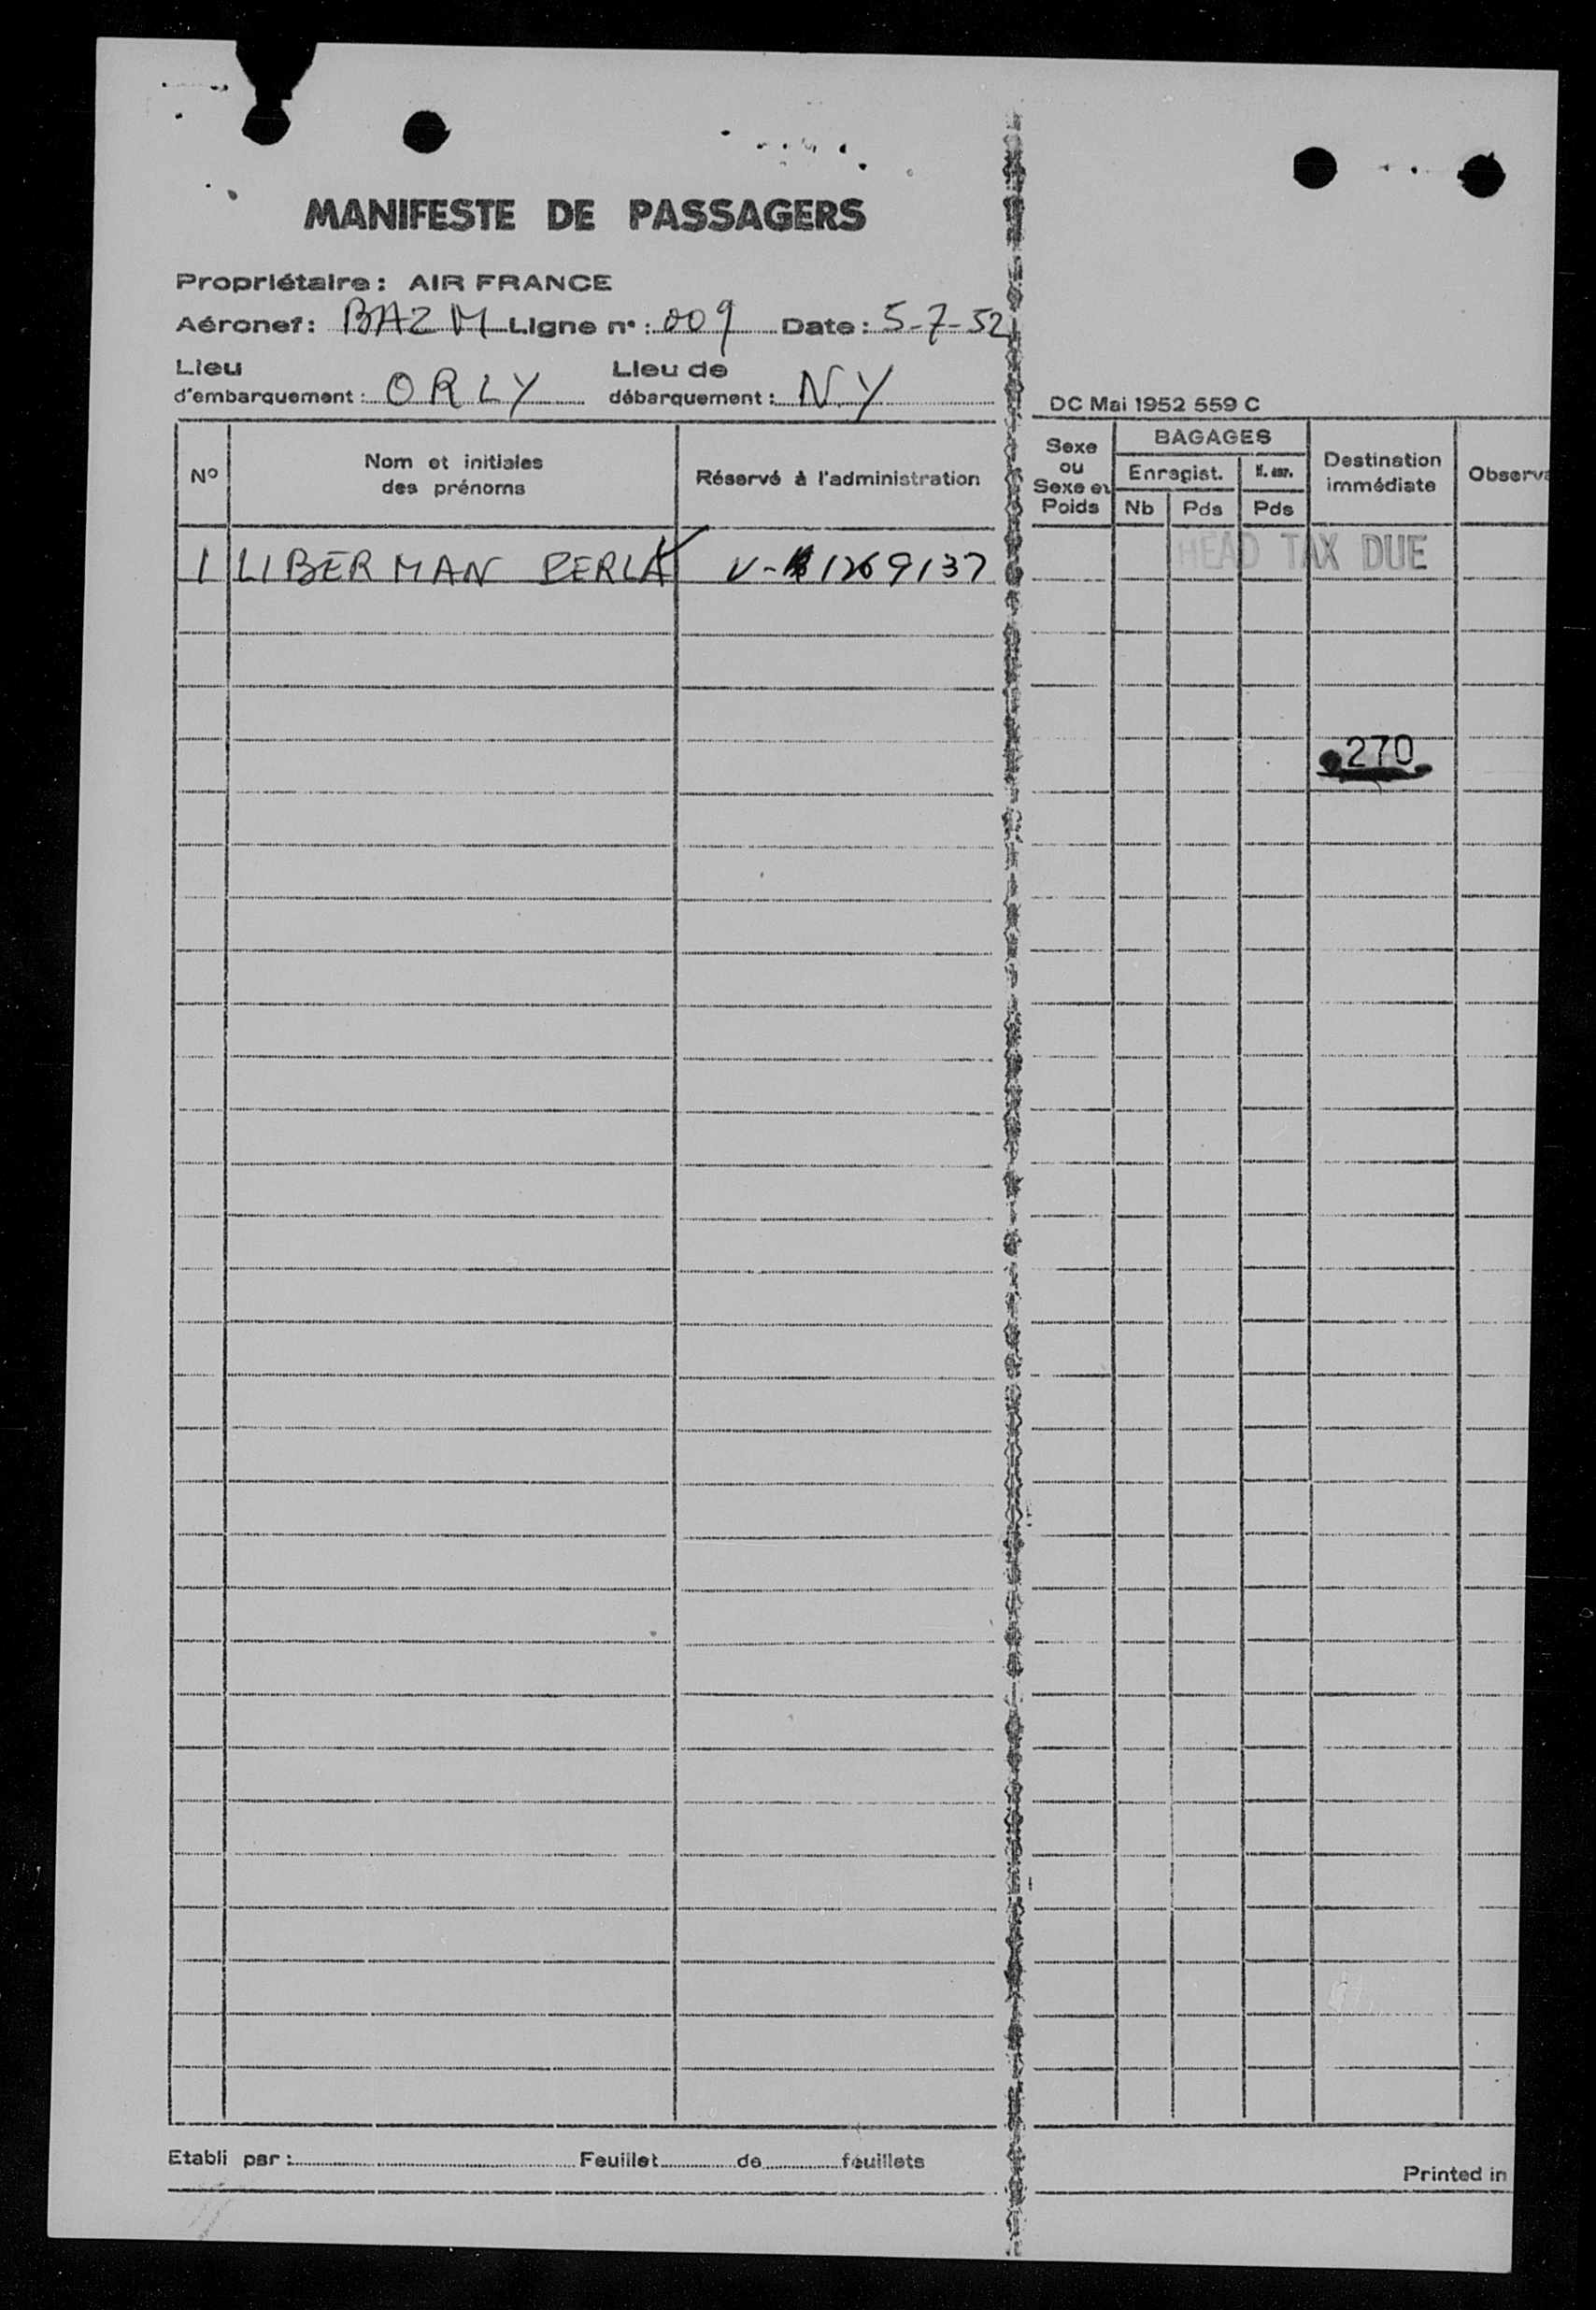 MANIFESTE DE PASSAGERS
Propriétaire : AIR FRANCE
Aéronef : BAZM Ligne n° : 009 Date : 5-7-52
Lieu d'embarquement : ORLY Lieu de débarquement : N.Y
DC Mai 1952 559 C
N° Nom et initiales des prénoms Réservé à l'administration Sexe ou Sexe et Poids BAGAGES Enregist. Nb Pds N. enr. Pds Destination immédiate Observa
1 LIBERMAN PERLA V-1269137 HEAD TAX DUE
270
Etabli par : Feuillet de feuillets
Printed in